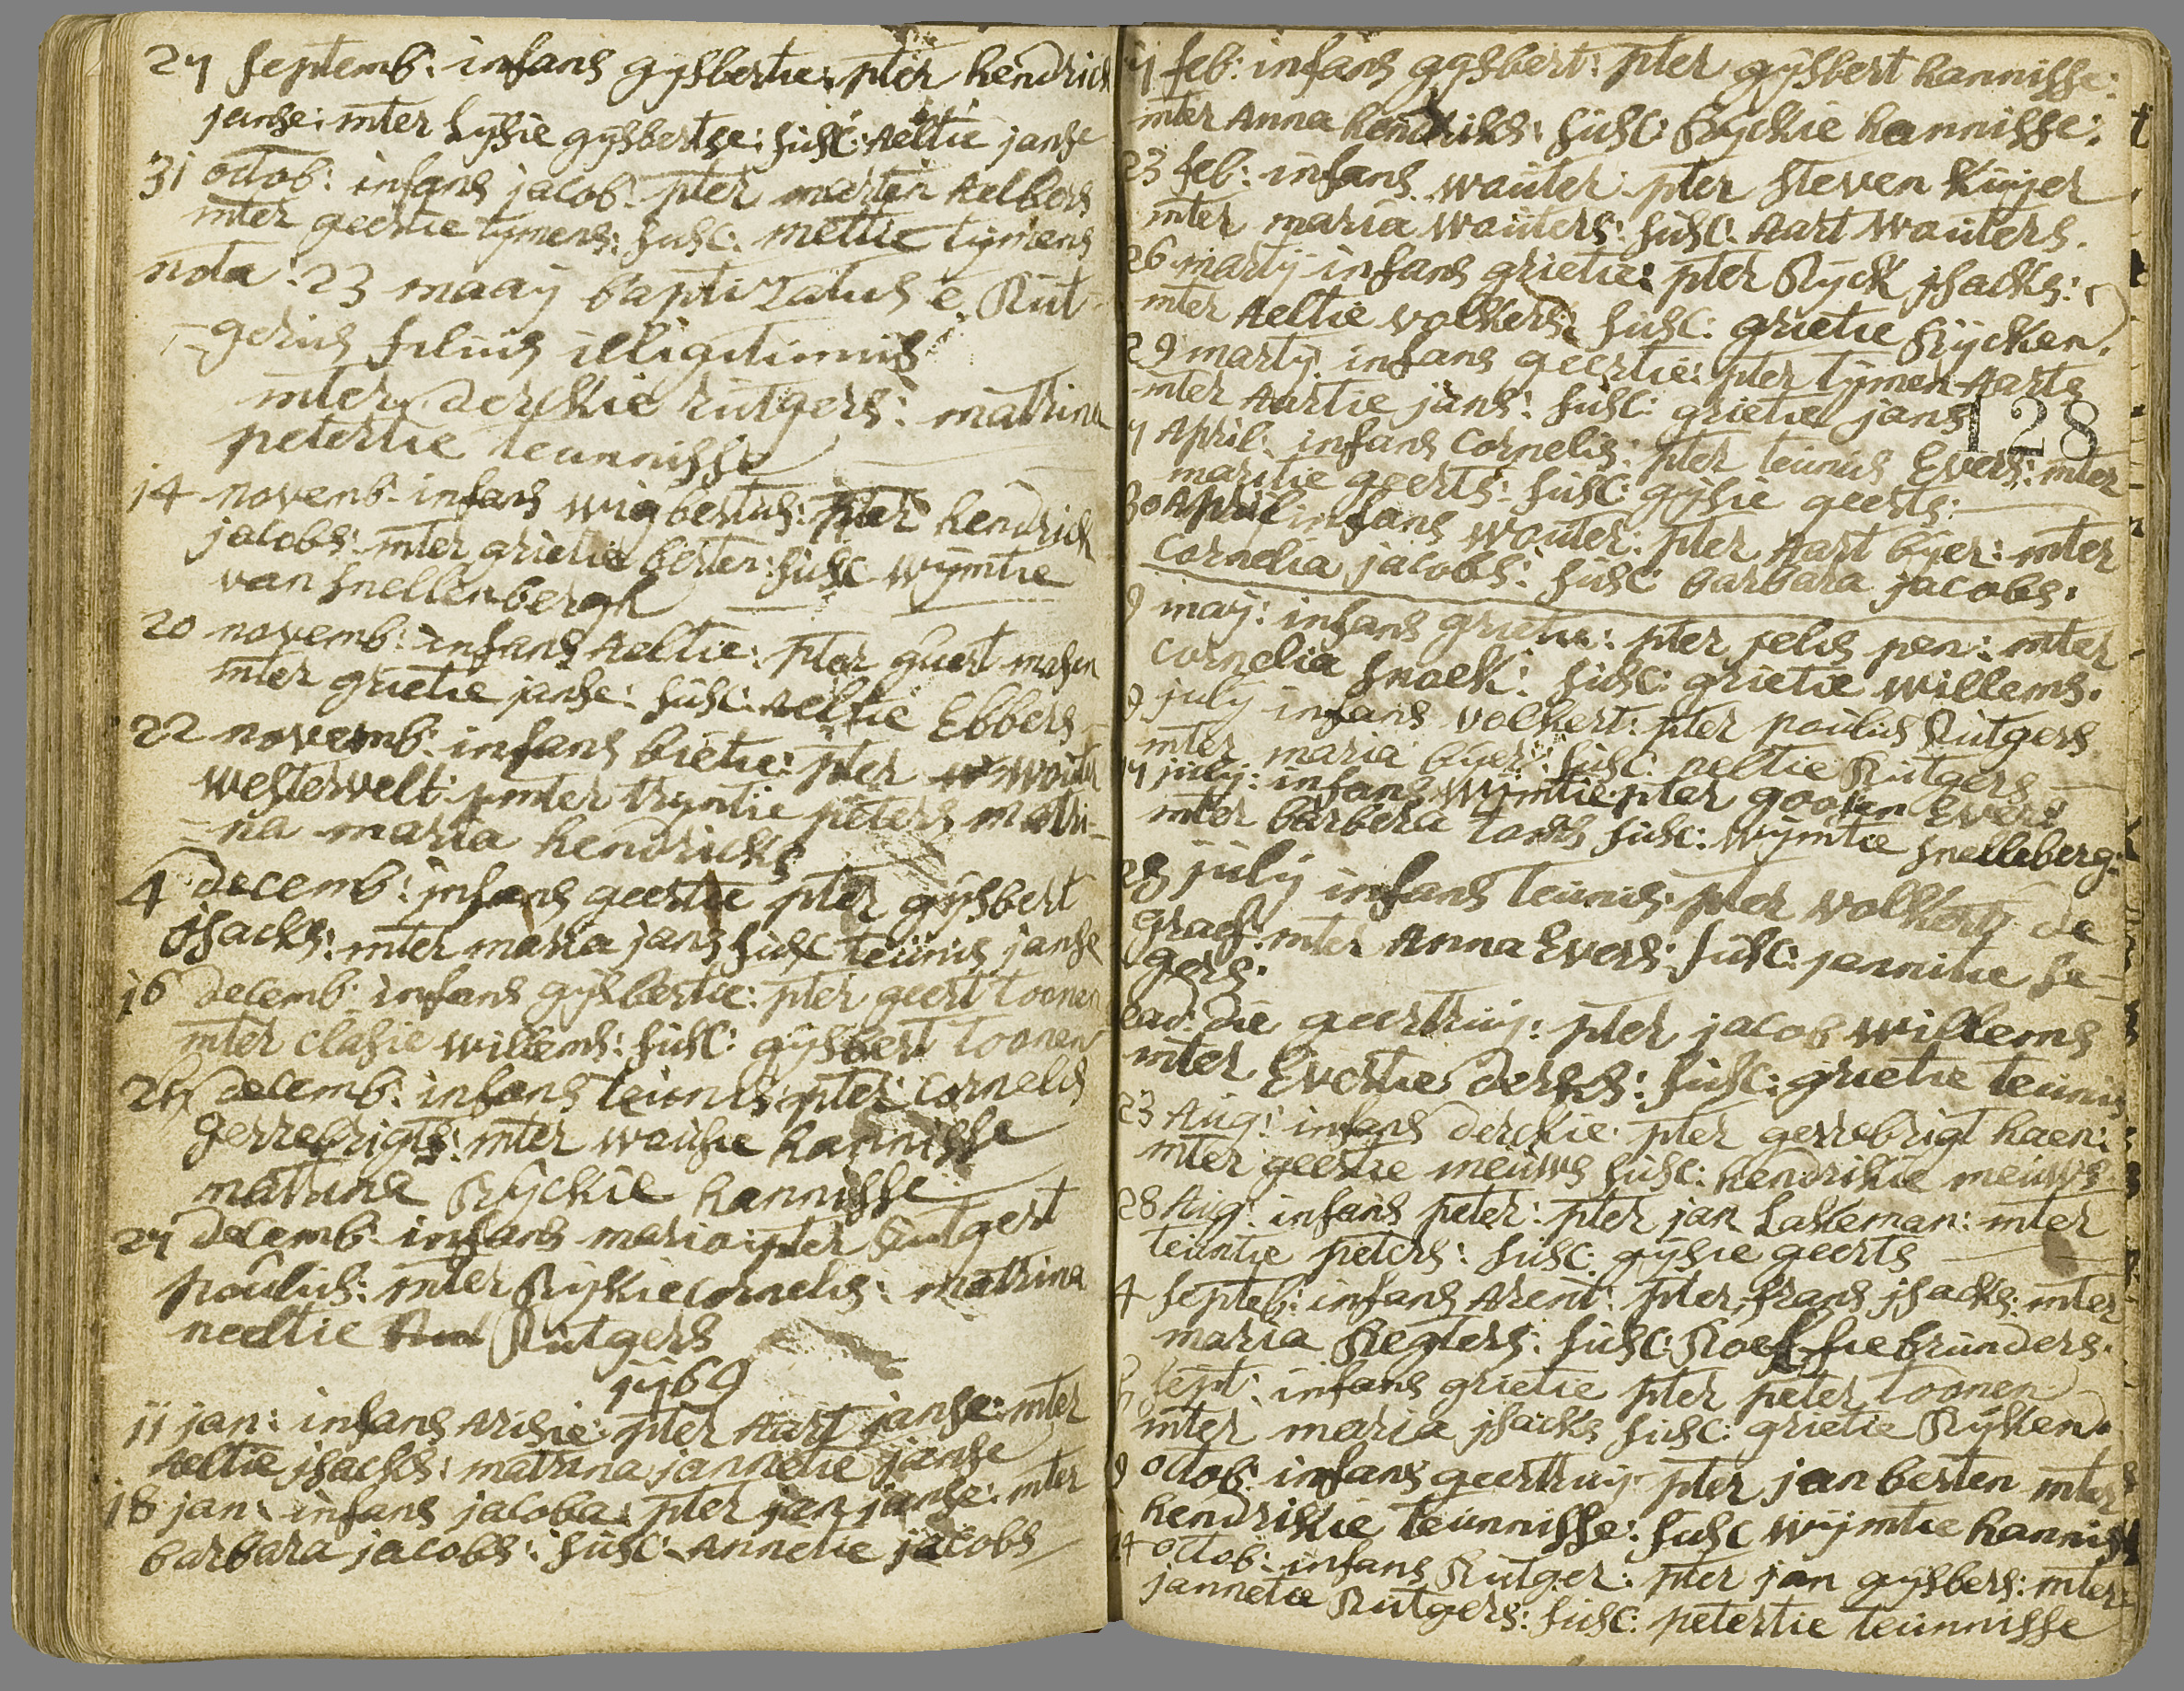 27 septemb: infans gysbertie: pter hendrick
janse: mter Lysie gysbertse: susc: Aeltie janse
31 octob: infans jacob: pter marten Aelbers
mter geertie tymens: susc: mettie tijmens
nota: 23 maaij baptizatus e. Rut-
gerius filius illigitimus
mter derckie rutgers: matrina
petertie teunnisse
14 novemb: infans wigbertus: pter hendrick
jacobs: mter grietie berten: susc wijmtie
van snellenbergh
20 novemb: infans Aeltie: pter guert
mter grietie janse: susc: Aeltie Ebbers
22 novemb: infans bietie: pter wouter
westervelt: mter tryntie peters matri-
na maria hendricks
4 decemb: infans geertie pter gijsbert
jsacks: mter maria jans susc teunis janse
16 decemb: infans gijsbertie: pter geert toonen
mter clasie willems: susc: gijsbert toonen
decemb: infans teunis: pter: cornelis
gerrebrigts: mter wousie hannisse
matrina Ryckie hannisse
27 decemb: infans maria: pter Rutgert
poulus: mter Ryckie cornelis: matrina
neeltie Rutgers
1769
11 jan: infans Arisie: pter Aart janse: mter
Aeltie jsacks: matrina jannetie janse
18 jan: infans jacoba: pter jan janse: mter
barbara jacobs: susc: Annetie jacobs
feb: infans gysbert: pter gijsbert hannisse:
mter Anna hendriks: susc: Ryckie hannisse:
23 feb: infans wouter: pter steven Kuijer
mter maria wouters: susc: Aart wouters.
26 martij infans grietie: pter Ryck jsacks:
mter Aeltie volkers: susc: grietie Rycken.
29 martij infans geertie: pter tijmen Aarts
mter Aartie jans: susc: grietie jans
128
7 April: infans Cornelis: pter teunis Evers: mter
maritie geerts: susc: gijsie geerts:
30 April infans wouter: pter Aart bijer: mter
Cornelia jacobs: susc: barbara jacobs.
9 maij: infans grietie: pter jelis pen: mter
cornelia snoek: susc: grietie willems.
9 julij infans volkert: pter poulus Rutgers
mter maria bijer: susc: neltie Rutgers
17 julij: infans wijmtie pter goosen Evers
mter barbera susc: wijmtie snelleberg:
28 julij infans teunis: pter volkert de
graef: mter Anna Evers: susc: jannitie se-
gers.
ead: die geertruij: pter jacob willems
mter Evertie dercks: susc: grietie teunis
23 Aug: infans derckie: pter gerrebrigt haen:
mter geertie meuws susc: hendrikie meuws
28 Aug: infans peter: pter jan Lakeman: mter
teuntie peters: susc: gijsie geerts
4 septeb: infans Arent: pter frans jsacks: mter
maria Regters: susc: Roeffie brunders.
sept: infans grietie pter peter toonen
mter maria jsacks susc: grietie Ryken.
9 octob: infans geertruij pter jan berten mter
hendrikie teunnisse: susc wijmtie hannis
14 octob: infans Rutger: pter jan gijsbers: mter
jannetie Rutgers: susc: petertie teunnisse